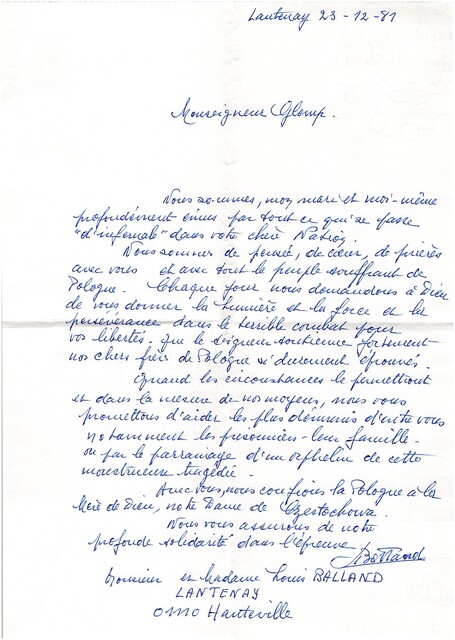 Lantenay 23-12-81
Monseigneur Glemp.
Nous sommes, mon mari et moi-même
profondément émus par tout ce qui se passe
"d'infernale" dans votre chère Nation.
Nous sommes de pensée, de cœur, de prières
avec vous et avec tout le peuple souffrant de
Pologne. Chaque jour nous demandons à Dieu
de vous donner la lumière et la force et la
persévérance dans le terrible combat pour
vos libertés. que le Seigneur soutienne fortement
nos chers frères de Pologne si durement éprouvés.
Quand les circonstances le permettront
et dans la mesure de nos moyens, nous vous
promettons d'aider les plus démunis d'entre vous
notamment les prisonniers - leur famille -
ou par le parrainage d'un orphelin de cette
monstrueuse tragédie.
Avec vous, nous confions la Pologne à la
Mère de Dieu, notre Dame de Częstochowa.
Nous vous assurons de notre
profonde solidarité dans l'épreuve
Balland
Monsieur et Madame Louis BALLAND
LANTENAY
01110 Hauteville